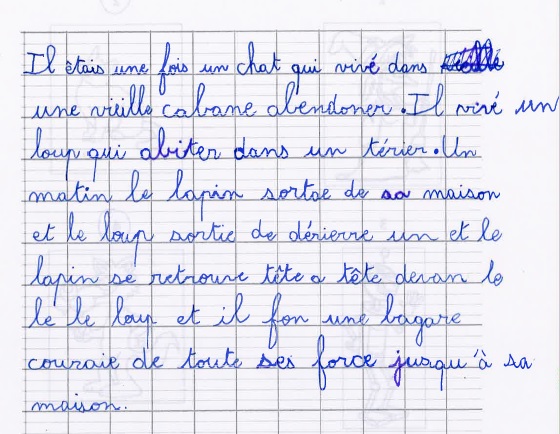 Il étais une fois un chat qui vivé dans
une vieille cabane abendoner. Il vivé un
loup qui abiter dans un térier. Un
matin le lapin sortae de sa maison
et le loup sortie de dérierre un et le
lapin se retrouve tête a tête devan le
le le loup et il fon une bagare
couraie de toute ses force jusqu'à sa
maison.